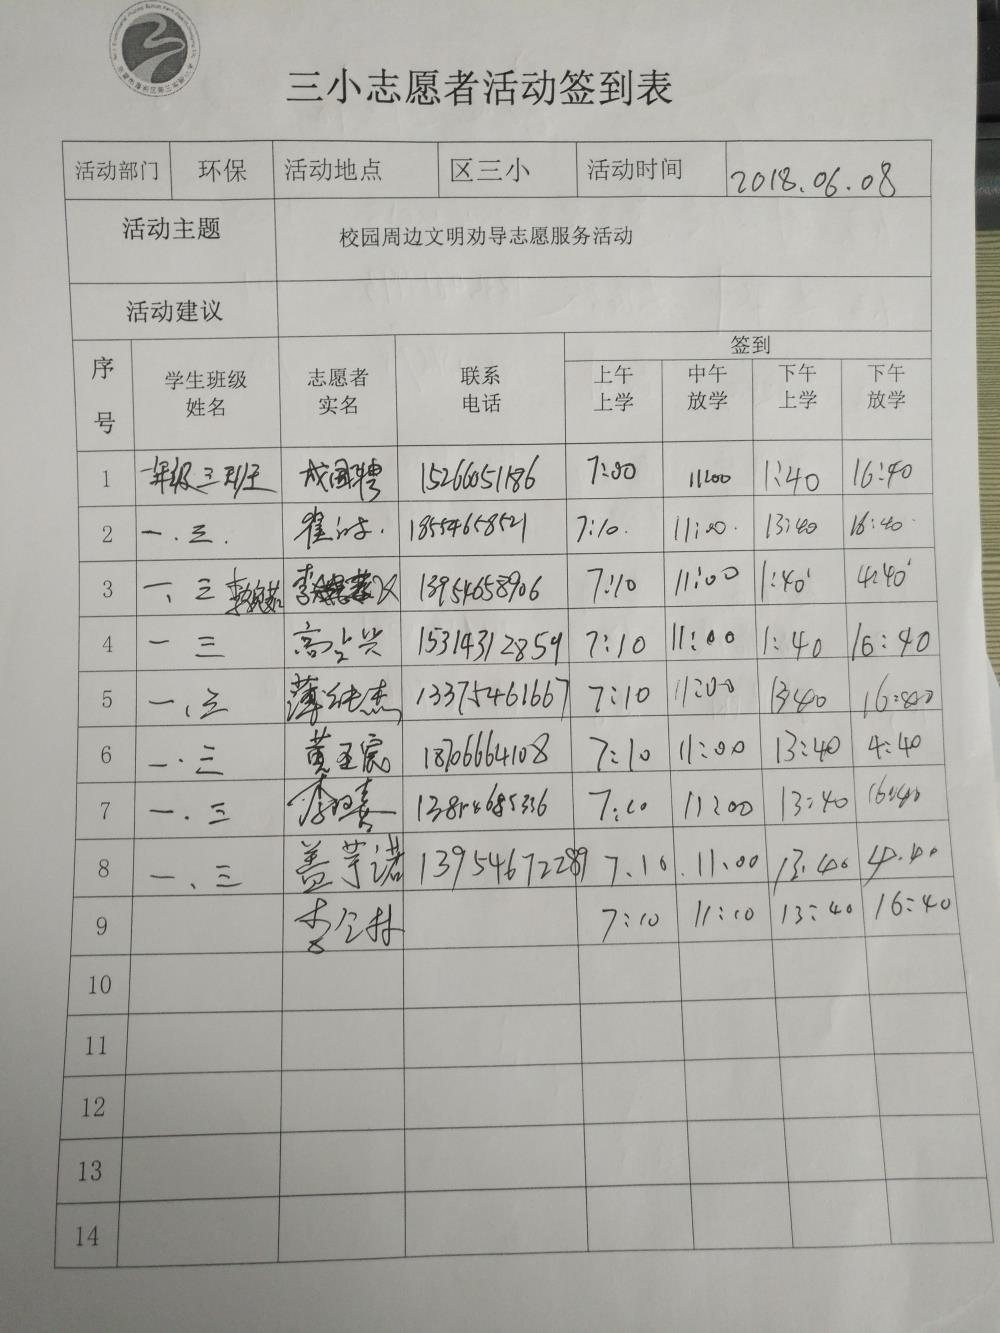 三小志愿者活动签到表
活动部门 环保 活动地点 区三小 活动时间 2018.06.08
活动主题 校园周边文明劝导志愿服务活动
活动建议
序号 学生班级姓名 志愿者实名 联系电话 签到
上午上学 中午放学 下午上学 下午放学
1 一年级三班 成国骋 15266051186 7:00 11:00 1:40 16:40
2 一.三. 18554658521 7:10. 11:00. 13:40 16:40.
3 一、三 13954658906 7:10 11:00 1:40 4:40
4 一 三 15314312859 7:10 11:00 1:40 16:40
5 一、三 13375461667 7:10 11:00 13:40 16:40
6 一.三 18706664108 7:10 11:00 13:40 4:40
7 一.三 7:10 11:00 13:40 16:40
8 一、三 盖芋诺 13954672289 7.10 11.00 13:40 4.40
9 7:10 11:10 13:40 16:40
10
11
12
13
14